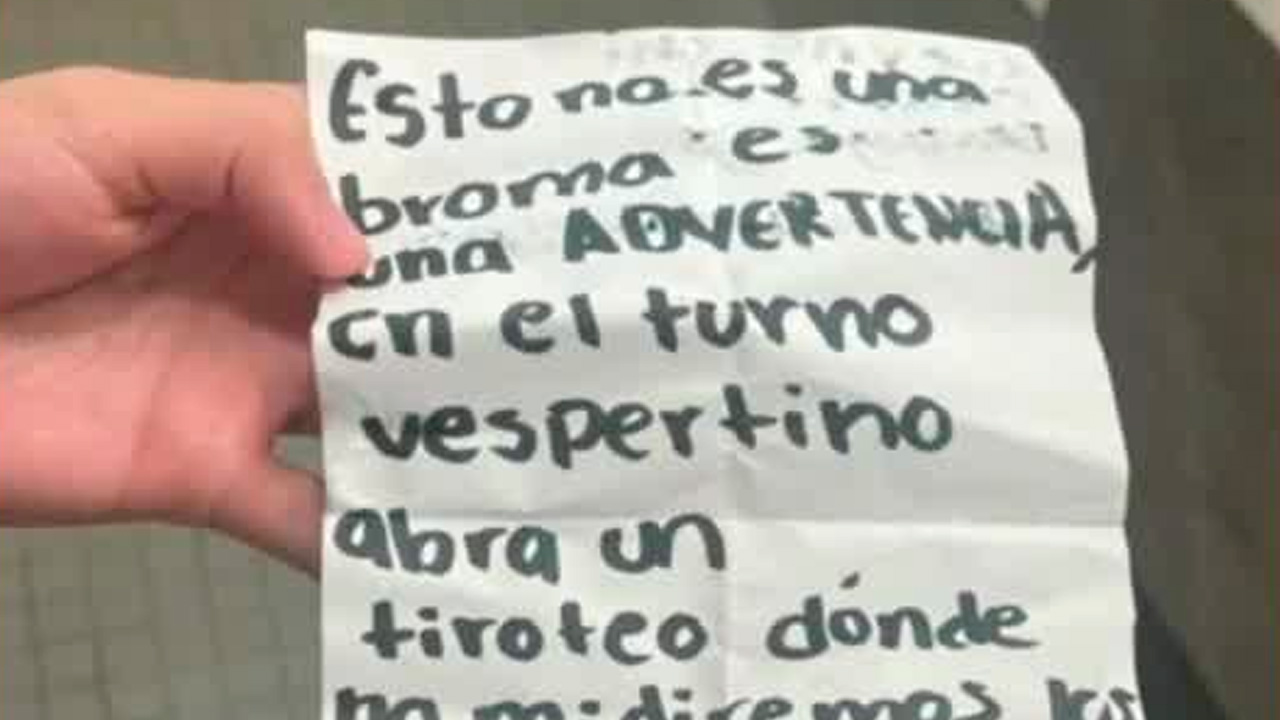 Esto no es una
broma es
una ADVERTENCIA,
en el turno
vespertino
abra un
tiroteo dónde
no mediremos los